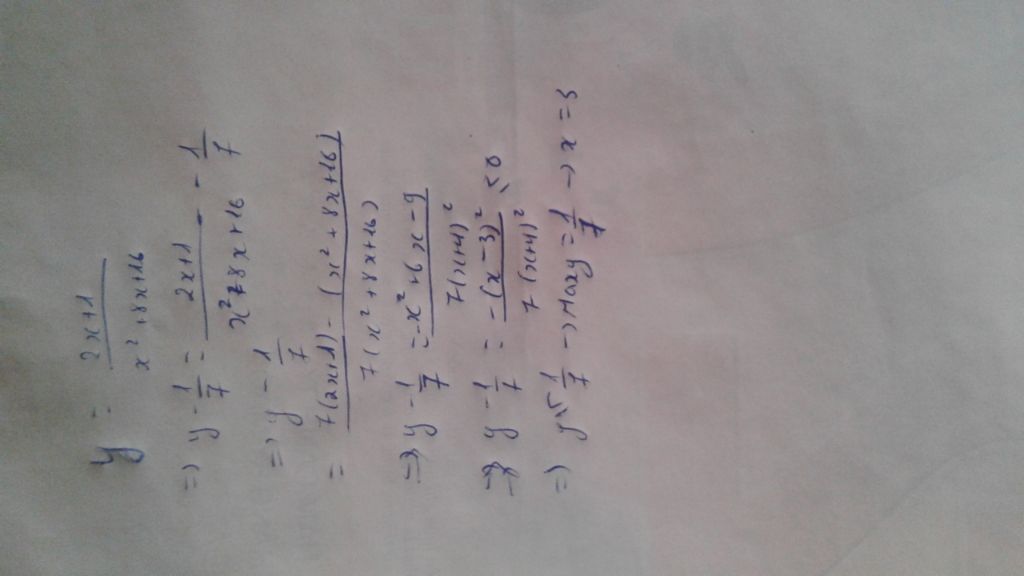 y = (2x+1)/(x²+8x+16)
=> y - 1/7 = (2x+1)/(x²+8x+16) - 1/7
=> y - 1/7
= (7(2x+1) - (x²+8x+16))/(7(x²+8x+16))
=> y - 1/7 = (-x²+6x-9)/(7(x+4)²)
=> y - 1/7 = (-(x-3)²)/(7(x+4)²) ≤ 0
=> y ≤ 1/7 -> Maxy = 1/7 -> x = 3